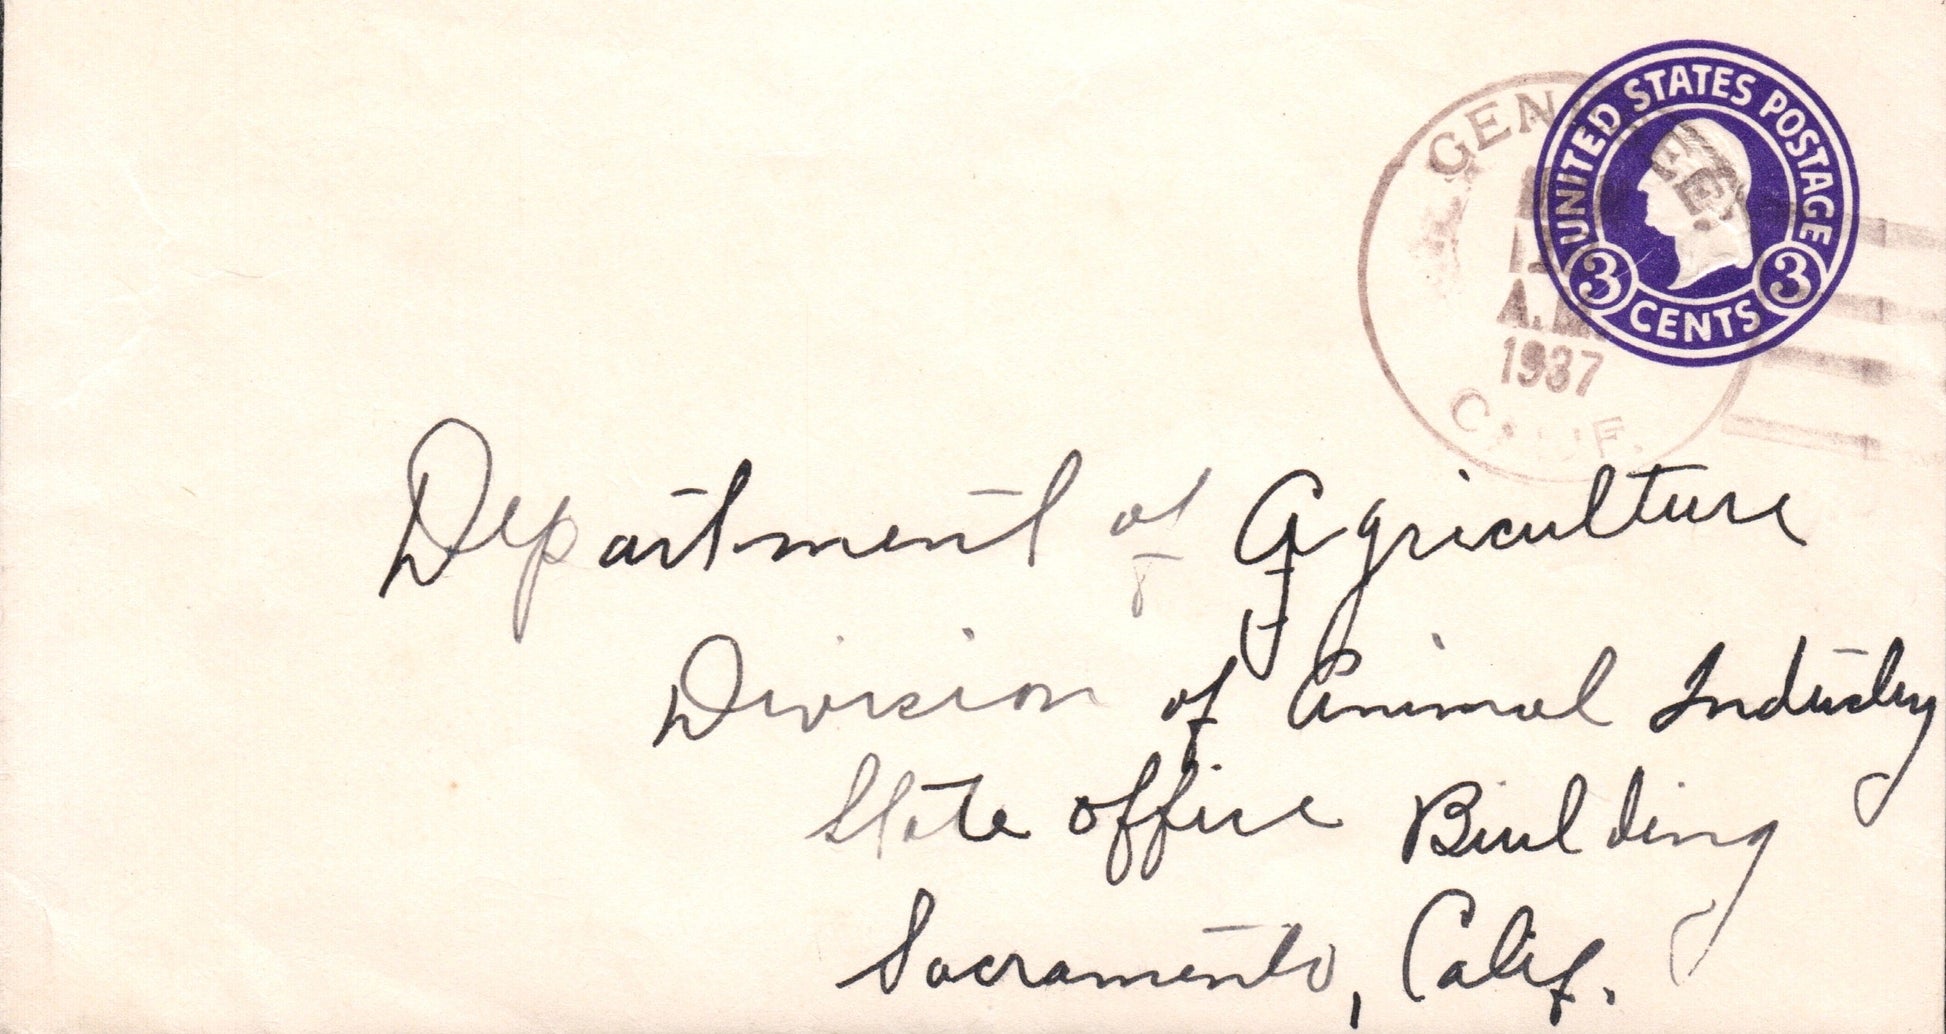 UNITED STATES POSTAGE
3 CENTS 3
GENESEE.
A.M.
1937
CALIF.
Department of Agriculture
Division of Animal Industry
State office Building
Sacramento, Calif.